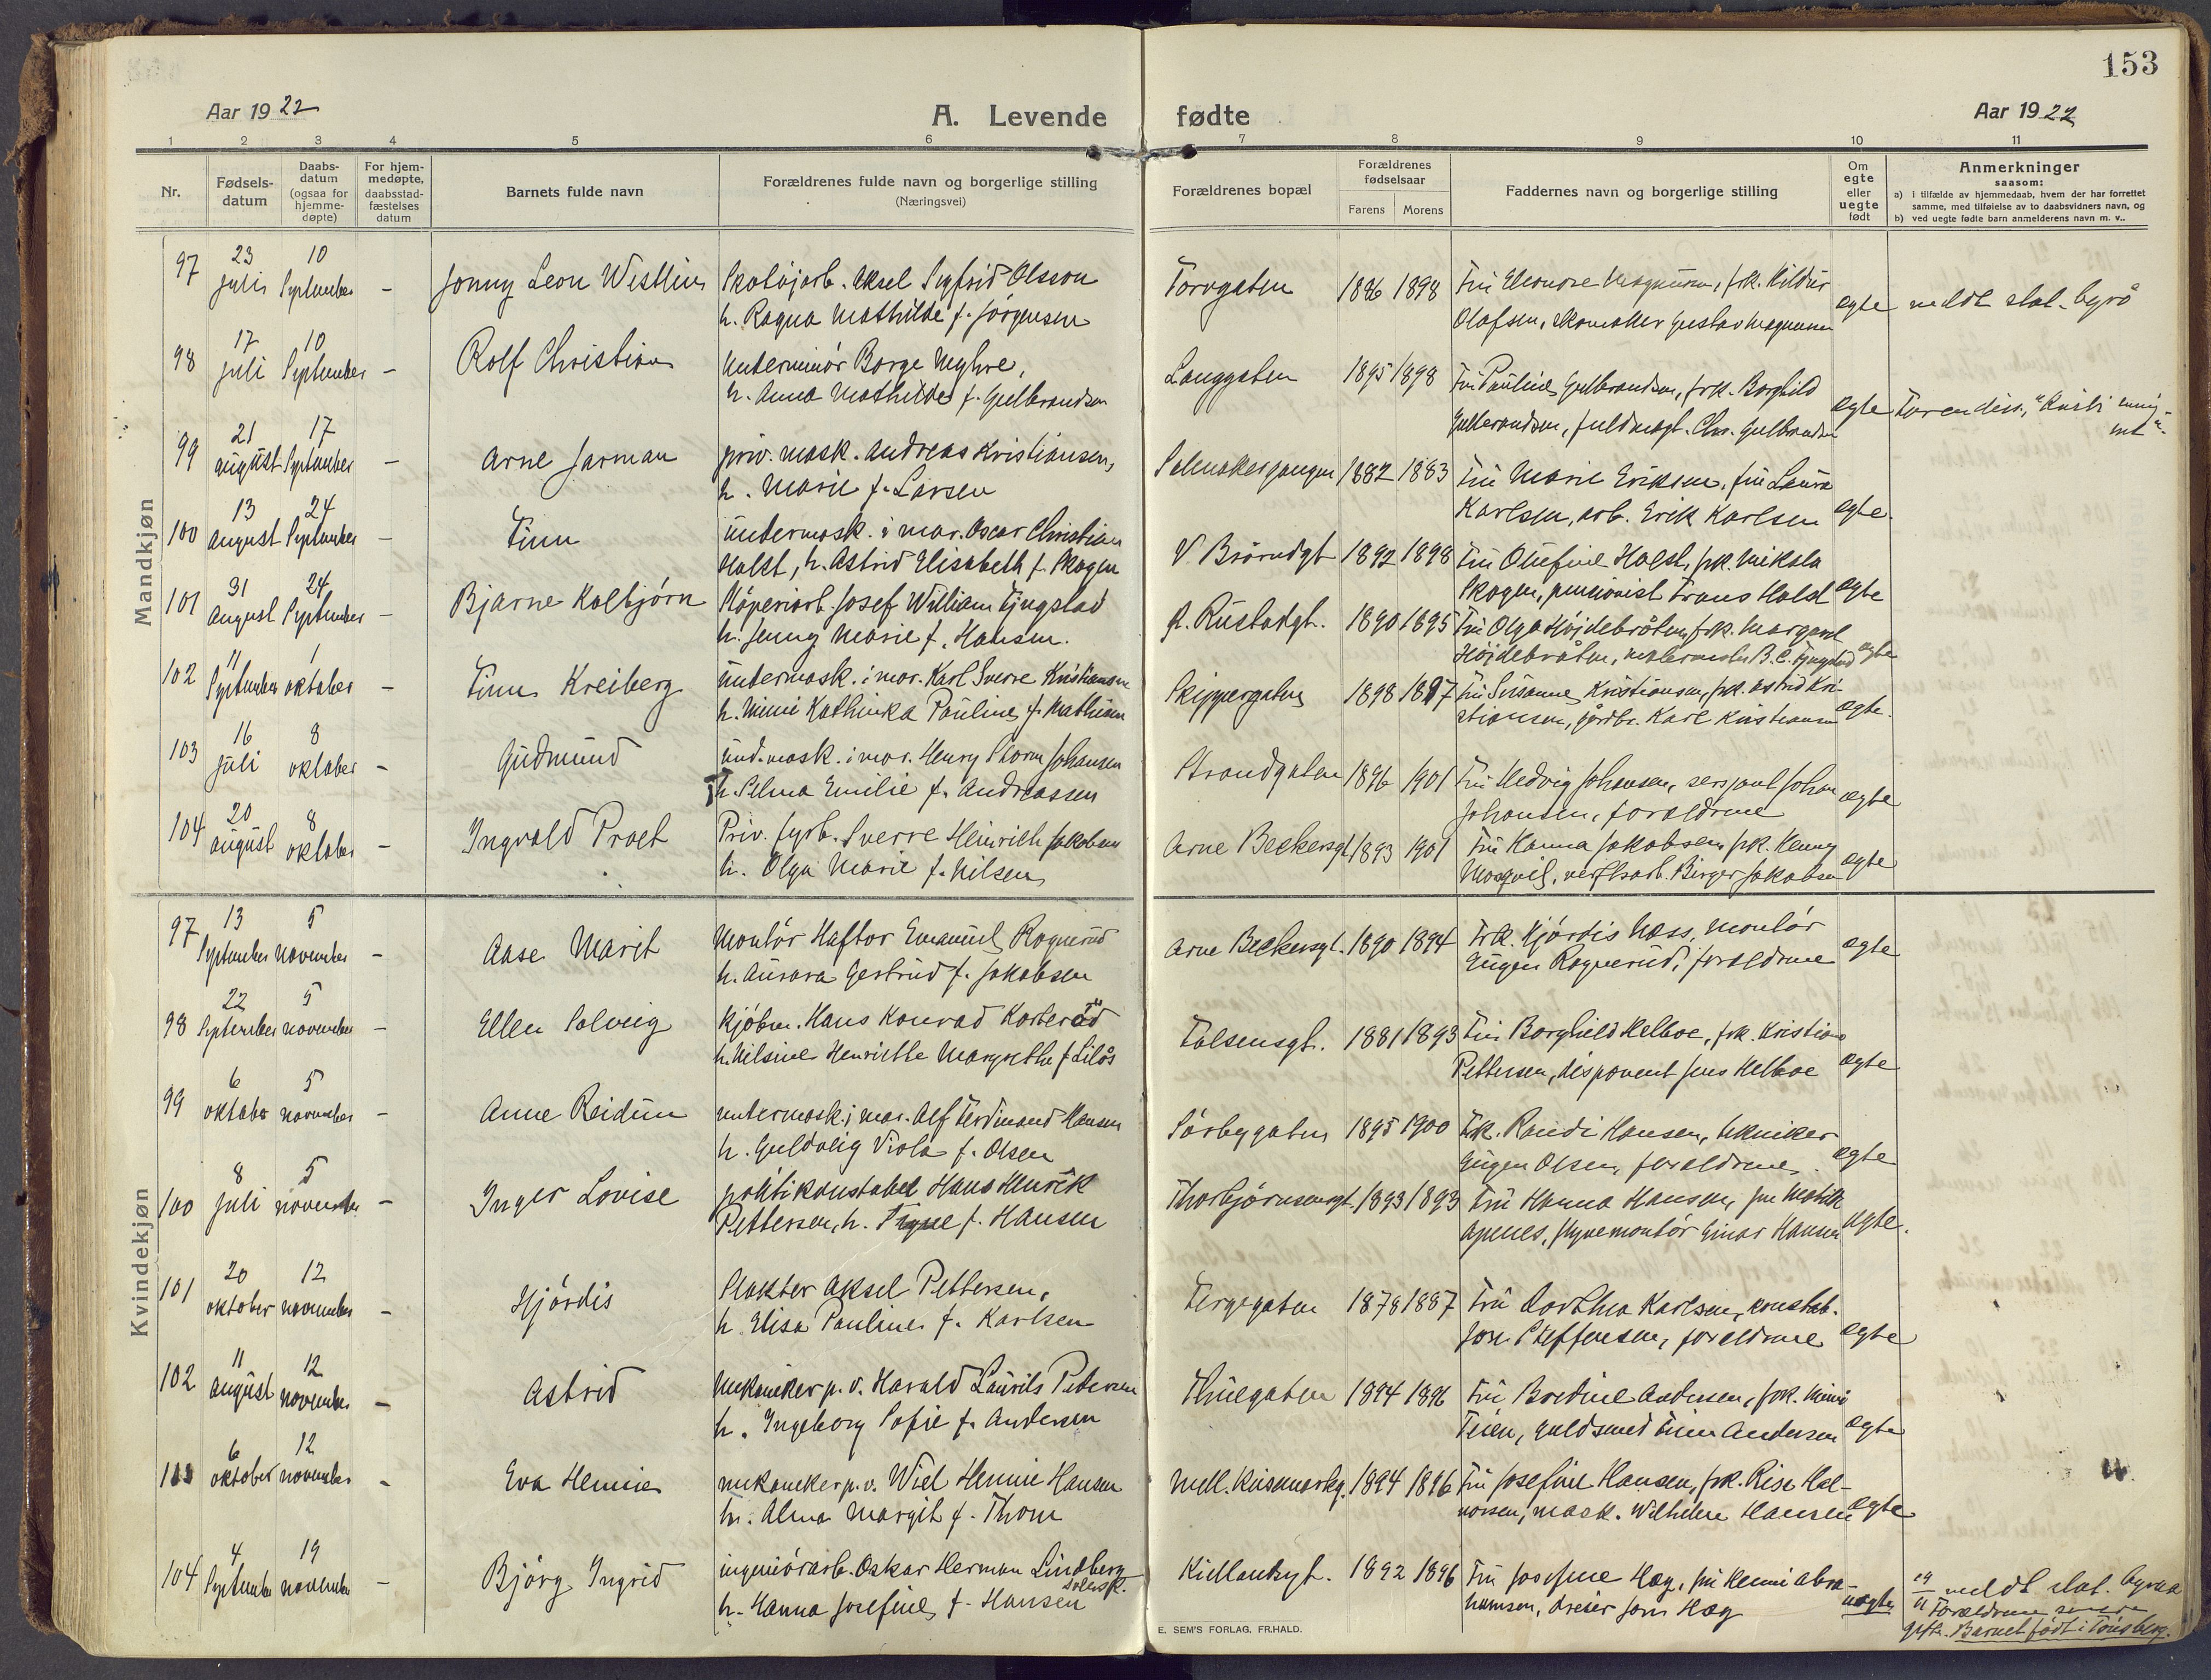 153
Aar 1922
A. Levende fødte
Aar 1922
1 2 3 4 5 6 7 8 9 10 11
Nr.
Fødsels-
datum
Daabs-
datum
(ogsaa for
hjemme-
døpte)
For hjem-
medøpte,
daabsstad-
fæstelses
datum
Barnets fulde navn
Forældrenes fulde navn og borgerlige stilling
(Næringsvei)
Forældrenes bopæl
Forældrenes
fødselsaar
Farens
Morens
Faddernes navn og borgerlige stilling
Om
egte
eller
uegte
født
Anmerkninger
saasom:
a) i tilfælde av hjemmedaab, hvem der har forrettet
samme, med tilføielse av to daabsvidners navn, og
b) ved uegte fødte barn anmelderens navn m. v..
Mandkjøn
97 23 juli 10 September - Jonny Leon Westlin
Aksel Sigfrid Olsson
h. Ragna Mathilde f. Jörgensen
Torvgaten 1886 1898
Fru Eleonore Magnusson, frk. Hildur
Olafsen, skomaker Gustav Magnusson
egte meldt stat. byrå
98 17 juli 10 September - Rolf Christian
Underminör Borge Myhre,
h. Anna Mathilde f. Gulbrandsen
Langgaten 1895 1898
Fru Pauline Gulbrandsen, frk. Borghild
Gulbrandsen, fuldmægt. Chr. Gulbrandsen
egte
99 21 august 17 September - Arne Jarman
priv. mask. Andreas Kristiansen,
h. Marie f. Larsen
1882 1883
Fru Marie Eriksen, fru Laura
Karlsen, arb. Erik Karlsen
egte.
100 13 august 24 September - Finn
undermask. i mar. Oscar Christian
Holst, h. Astrid Elisabeth f. Skogen
V Brårudgt 1892 1898
Fru Olufine Holst, frk. Mikala
Skogen, pensionist Frans Holst
egte
101 31 august 24 September - Bjarne Kolbjørn
Josef William Tjugstad
h. Jenny Marie f. Hansen.
A. Rustadgt. 1890 1895
Fru Olga Höjdebråten, frk. Margaret
Höjdebråten, malermester B. C. Tjugstad
egte
102 11 September 1 oktober - Finn Kreiberg
undermask. i mar. Karl Sverre Kristiansen
h. Mimi Kathinka Pauline f. Mathisen
Skippergaten 1898 1897
Fru Susanne Kristiansen, frk. Astrid Kri-
stiansen, gårdbr. Karl Kristiansen
egte.
103 16 juli 8 oktober - Gudmund
und.mask. i mar. Henry Storm Johansen
h. Selma Emilie f. Andreassen
Strandgaten 1896 1901
Fru Hedvig Johansen, sersjant Johan
Johansen, foreldrene
egte
104 20 august 8 oktober - Ingvald Proet
Priv. fyrb. Sverre Heinrich Jakobsen
h. Olga Marie f. Nilsen
Arne Beckersgt 1893 1901
Fru Hanna Jakobsen, frk. Henny
Mosqvil, verftsarb. Birger Jakobsen
egte
Kvindekjøn
97 13 September 5 november - Aase Marit
Montör Haftor Emanuel Rognerud
h. Aurora Gertrud f. Jakobsen
Arne Beckersgt. 1890 1894
Frk. Hjördis Næss, montör
Eugen Rognerud, foreldrene
egte
98 22 September 5 november - Ellen Solveig
kjöbm. Hans Konrad Korterød
h. Nilsine Henriette Margrethe f. Lilås
Tolsensgt. 1881 1893
Fru Borghild Helboe, frk. Kristiane
Pettersen, disponent Jens Helboe
egte
99 6 oktober 5 november - Anne Reidun
undermask. i mar. Alf Ferdinand Hansen
h. Guldveig Viola f. Olsen
Sörbygaten 1895 1900
Frk. Randi Hansen, tekniker
Eugen Olsen, foreldrene.
egte
100 8 juli 5 november - Inger Lovise
politikonstabel Hans Henrik
Pettersen, h. Signe f. Hansen
Thorbjørnsensgt. 1893 1893
Fru Hanna Hansen, fru Mathilde
Apenes, flyvemontör Einar Hansen
egte.
101 20 oktober 12 november - Hjördis
Slakter Aksel Pettersen,
h. Elisa Pauline f. Karlsen
Fergegaten 1878 1887
Fru Dorthea Karlsen, konstab.
Jose Steffensen, foreldrene
egte
102 11 august 12 november - Astrid
Mekaniker p. v. Harald Laurits Petersen
h. Ingeborg Sofie f. Andersen
Thuegaten 1894 1896
Fru Bredine Andersen, frk. Mimi
Teien, guldsmed Einar Andersen
egte
103 6 oktober 12 november - Eva Hennie
mekaniker p. v. Wiel Hennie Hansen
h. Alma Margit f. Thom
1894 1896
Fru Josefine Hansen, frk. Rise Hal-
vorsen, mask. Wilhelm Hansen
egte
104 4 September 19 november - Bjórg Ingrid
ingeniörarb. Oskar Herman Lindberg
svensk.
h. Hanna Josefine f. Hansen
Kiellandsgt. 1892 1896
Fru Josefine Hæg, fru Henni Abra-
hamsen, dreier Jorn Hæg
uegte
meldt stat. byraa
Forældrene senere
gifte. Barnet födt i Tönsberg.
E. SEM'S FORLAG, FR.HALD.